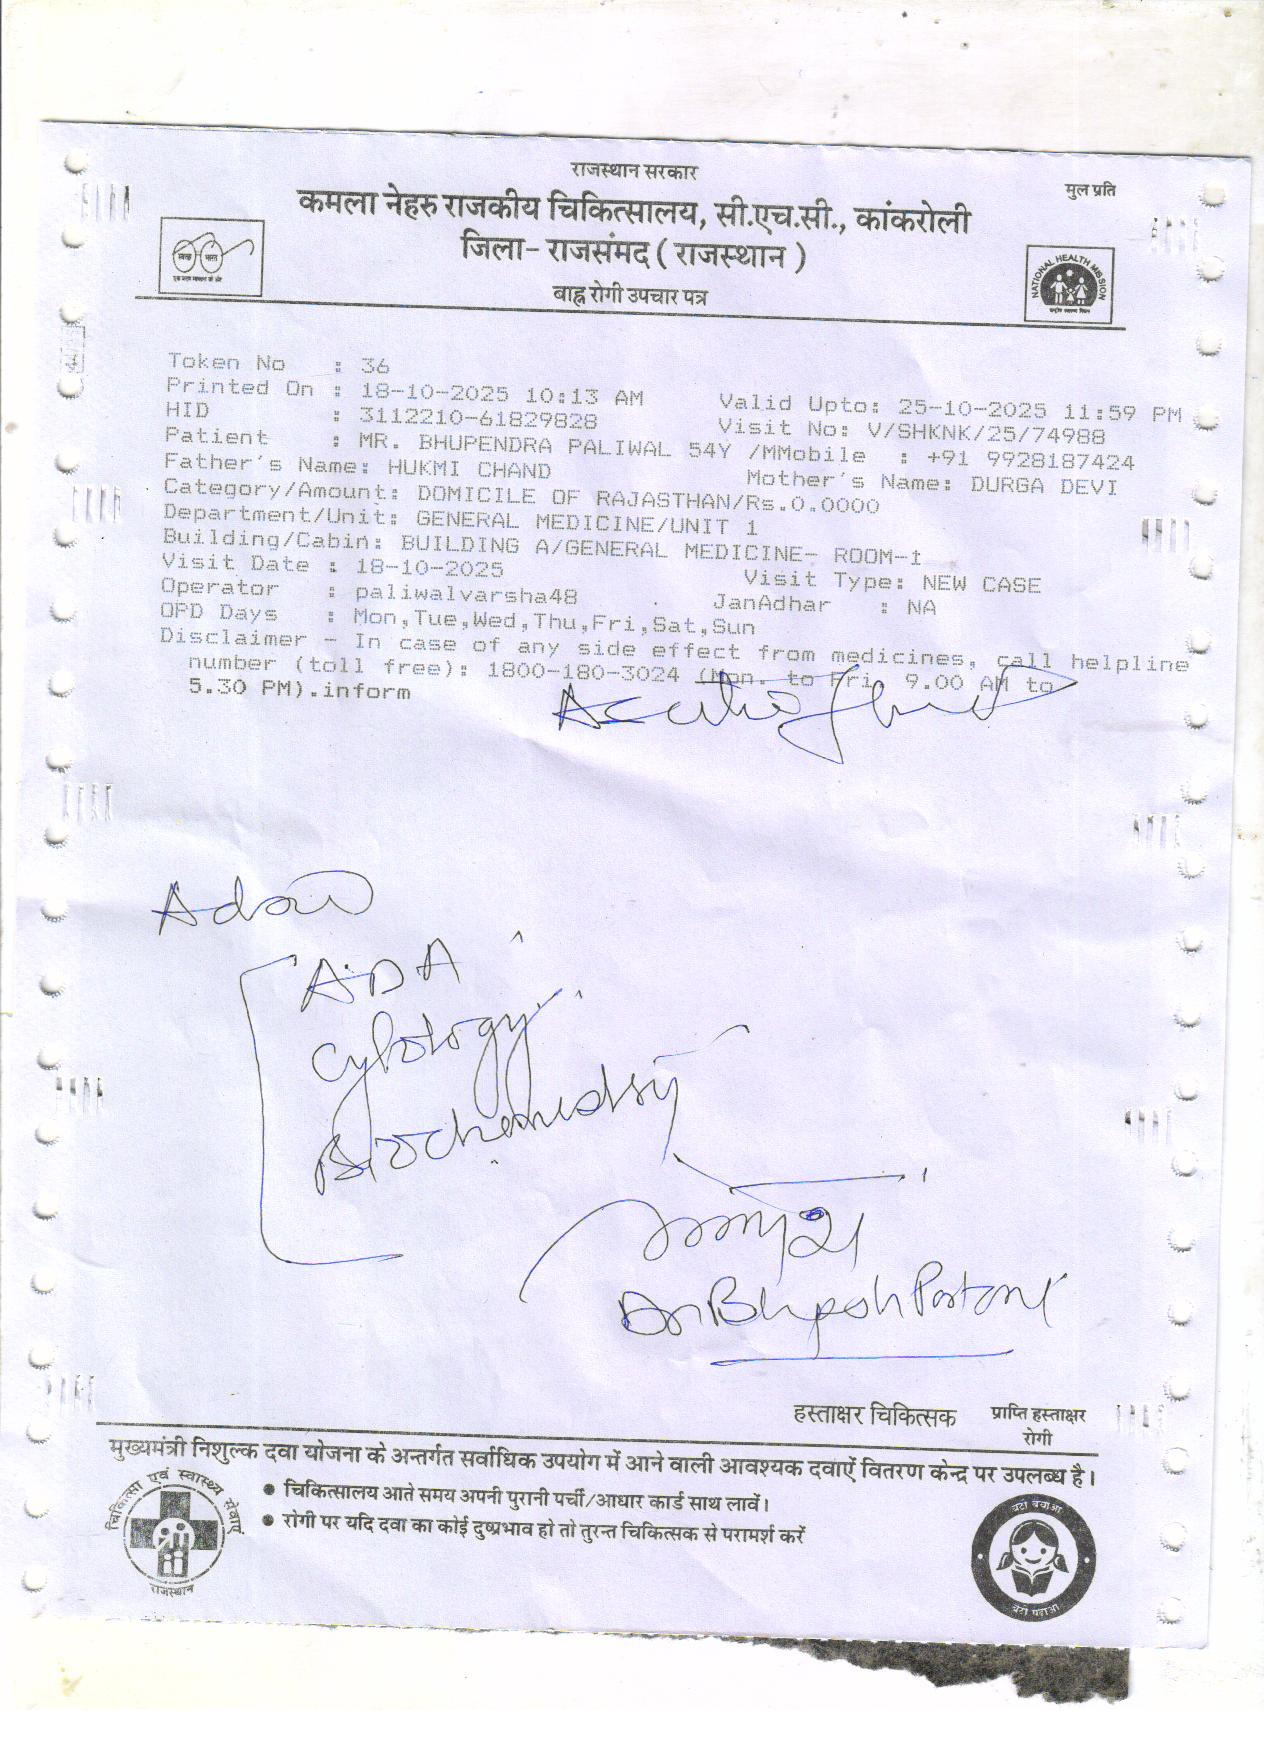 राजस्थान सरकार
मुल प्रति
कमला नेहरु राजकीय चिकित्सालय, सी.एच.सी., कांकरोली
जिला- राजसंमद ( राजस्थान )
बाह्य रोगी उपचार पत्र
स्वच्छ भारत
एक कदम स्वच्छता की ओर
NATIONAL HEALTH MISSION
राष्ट्रीय स्वास्थ्य मिशन
Token No : 36
Printed On : 18-10-2025 10:13 AM Valid Upto: 25-10-2025 11:59 PM
HID : 3112210-61829828 Visit No: V/SHKNK/25/74988
Patient : MR. BHUPENDRA PALIWAL 54Y /MMobile : +91 9928187424
Father's Name: HUKMI CHAND Mother's Name: DURGA DEVI
Category/Amount: DOMICILE OF RAJASTHAN/Rs.0.0000
Department/Unit: GENERAL MEDICINE/UNIT 1
Building/Cabin: BUILDING A/GENERAL MEDICINE- ROOM-1
Visit Date : 18-10-2025 Visit Type: NEW CASE
Operator : paliwalvarsha48 JanAdhar : NA
OPD Days : Mon,Tue,Wed,Thu,Fri,Sat,Sun
Disclaimer - In case of any side effect from medicines, call helpline
number (toll free): 1800-180-3024 (Mon. to Fri. 9.00 AM to
5.30 PM).inform
Ascitic fluid
ADA
Cytology
Biochemistry
Dr Bhpesh Partani
हस्ताक्षर चिकित्सक प्राप्ति हस्ताक्षर
रोगी
मुख्यमंत्री निशुल्क दवा योजना के अन्तर्गत सर्वाधिक उपयोग में आने वाली आवश्यक दवाऐं वितरण केन्द्र पर उपलब्ध है।
चिकित्सा एवं स्वास्थ्य सेवाएं
राजस्थान
● चिकित्सालय आते समय अपनी पुरानी पर्ची/आधार कार्ड साथ लावें।
● रोगी पर यदि दवा का कोई दुष्प्रभाव हो तो तुरन्त चिकित्सक से परामर्श करें
बेटी बचाओ
बेटी पढ़ाओ